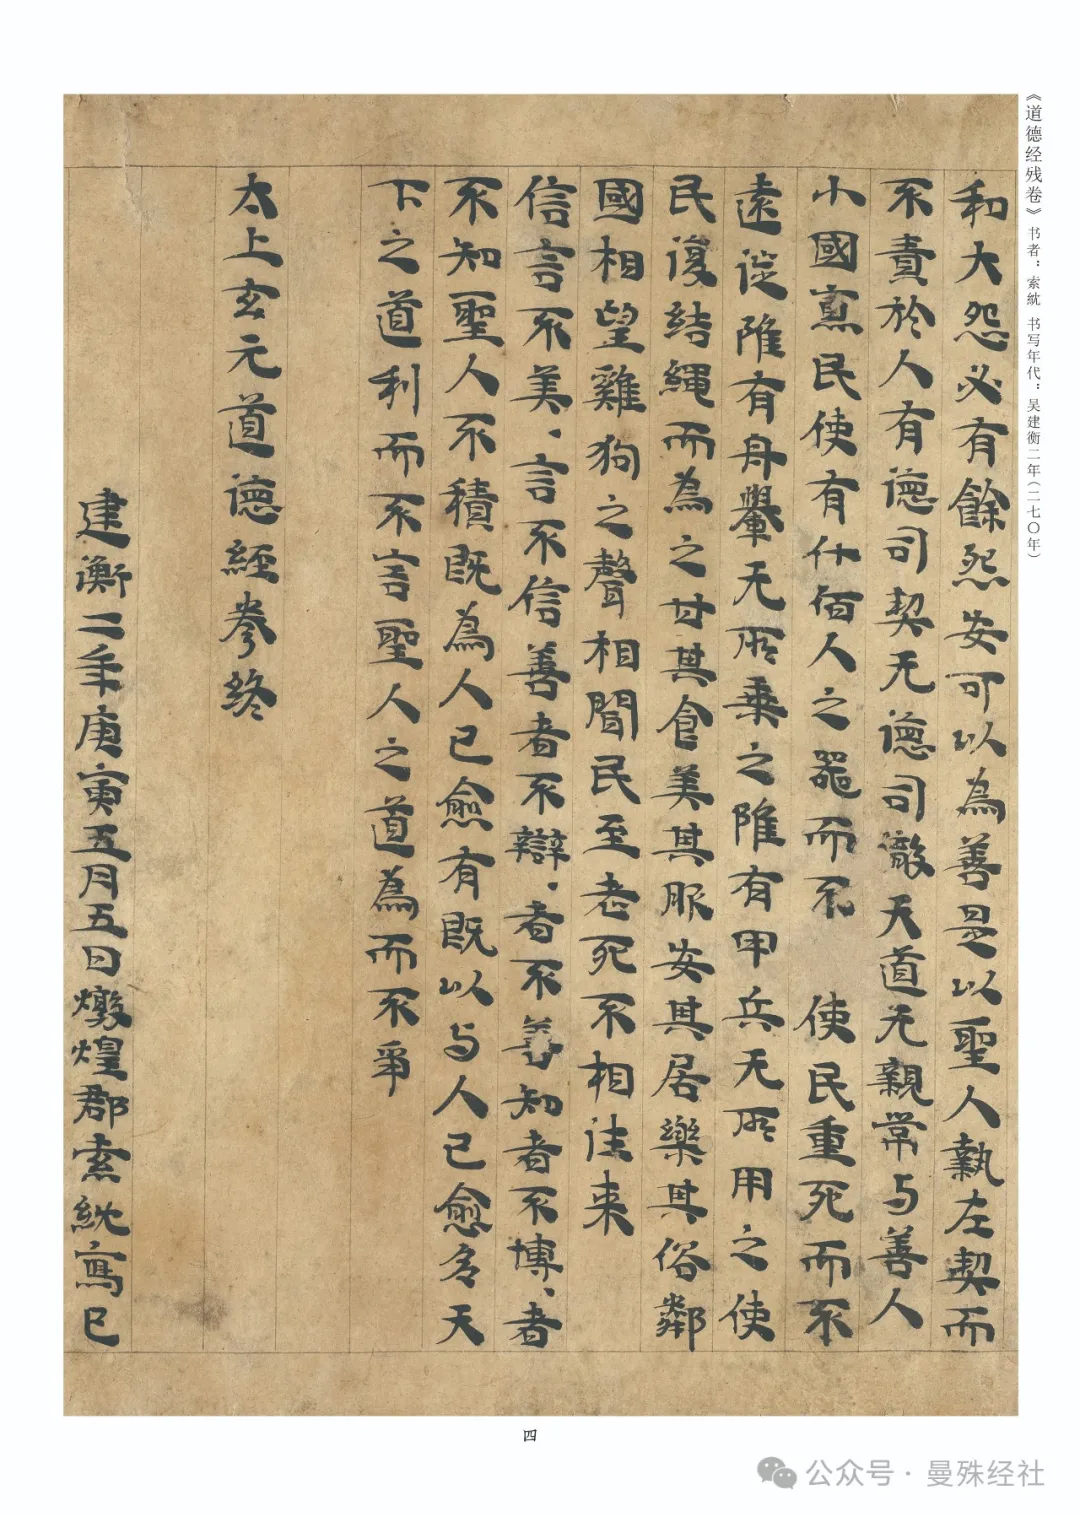 《道德经残卷》 书者：索紞 书写年代：吴建衡二年（二七〇年）
和大怨必有餘怨安可以為善是以聖人執左契而
不責於人有德司契无德司徹天道无親常与善人
小國寡民使有什佰人之器而不 使民重死而不
遠徙雖有舟轝无所乗之雖有甲兵无所用之使
民復結繩而為之甘其食美其服安其居樂其俗鄰
國相望雞狗之聲相聞民至老死不相往来
信言不美、言不信善者不辯、者不善知者不博、者
不知聖人不積既為人已愈有既以与人已愈多天
下之道利而不害聖人之道為而不爭
太上玄元道德經卷终
建衡二年庚寅五月五日燉煌郡索紞寫已
四
公众号·曼殊经社